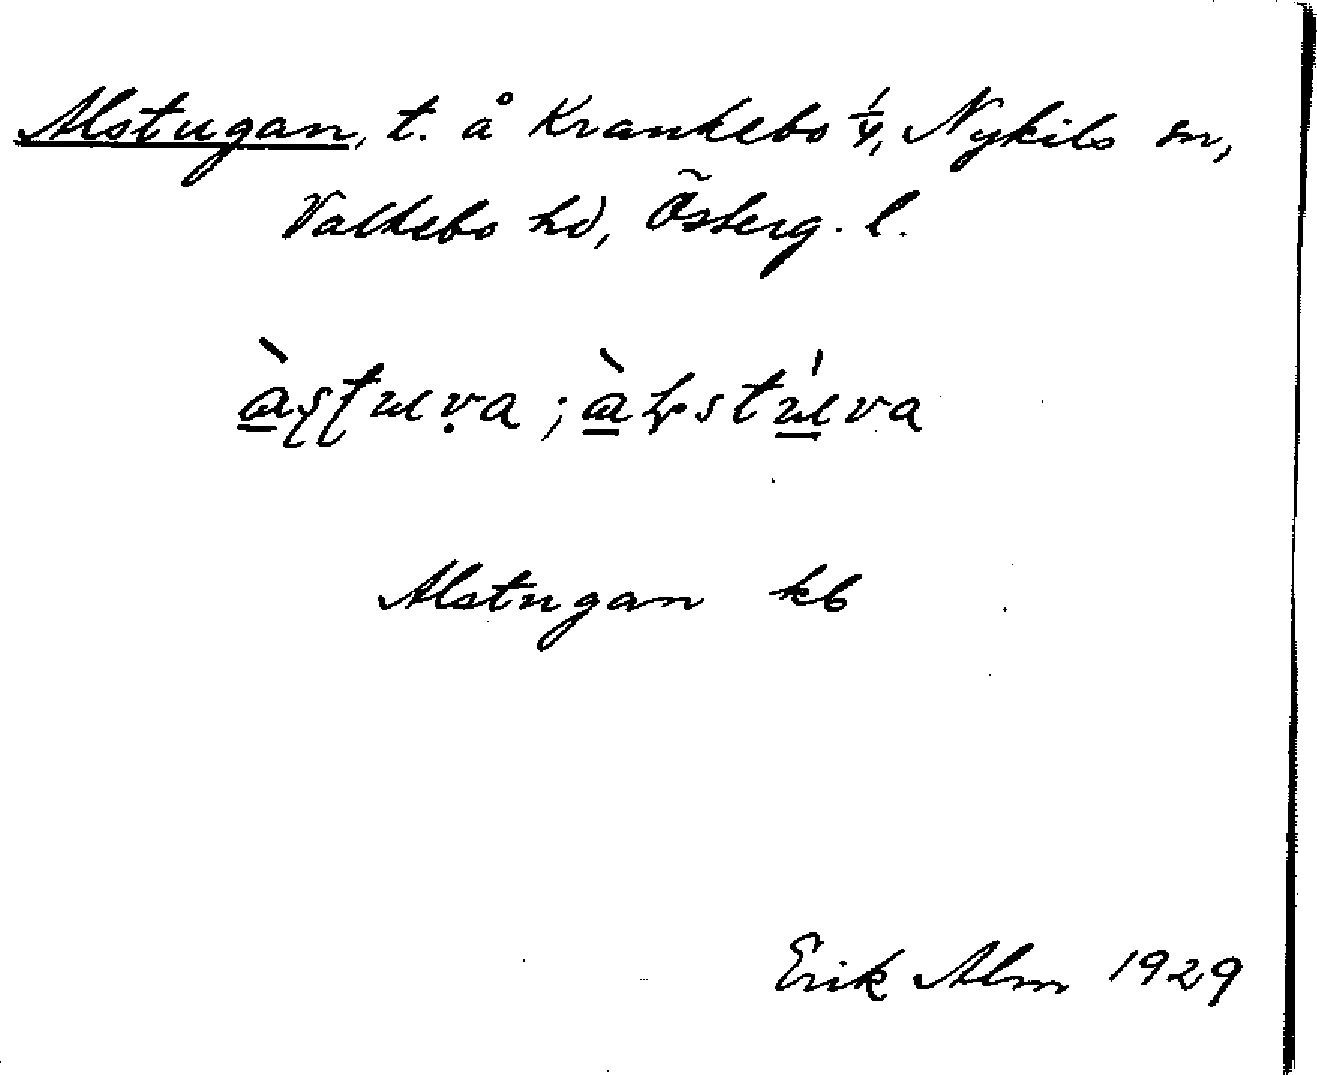 Alstugan, t. å Krankebo 1/4, Nykils sn,
Valkebo hd, Österg. l.
Alstugan kb
Erik Alm 1929